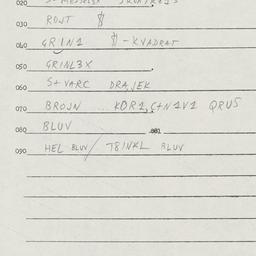 020
030 ROJT
040 GRIN1 -KVADRAT
050 GRINL3X
060 S+VARC DRAJEK
070 BROJN ... KOR1, C+N1V1 QRUS
080 BLUV .081
090 HEL BLUV/ T8INKL BLUV